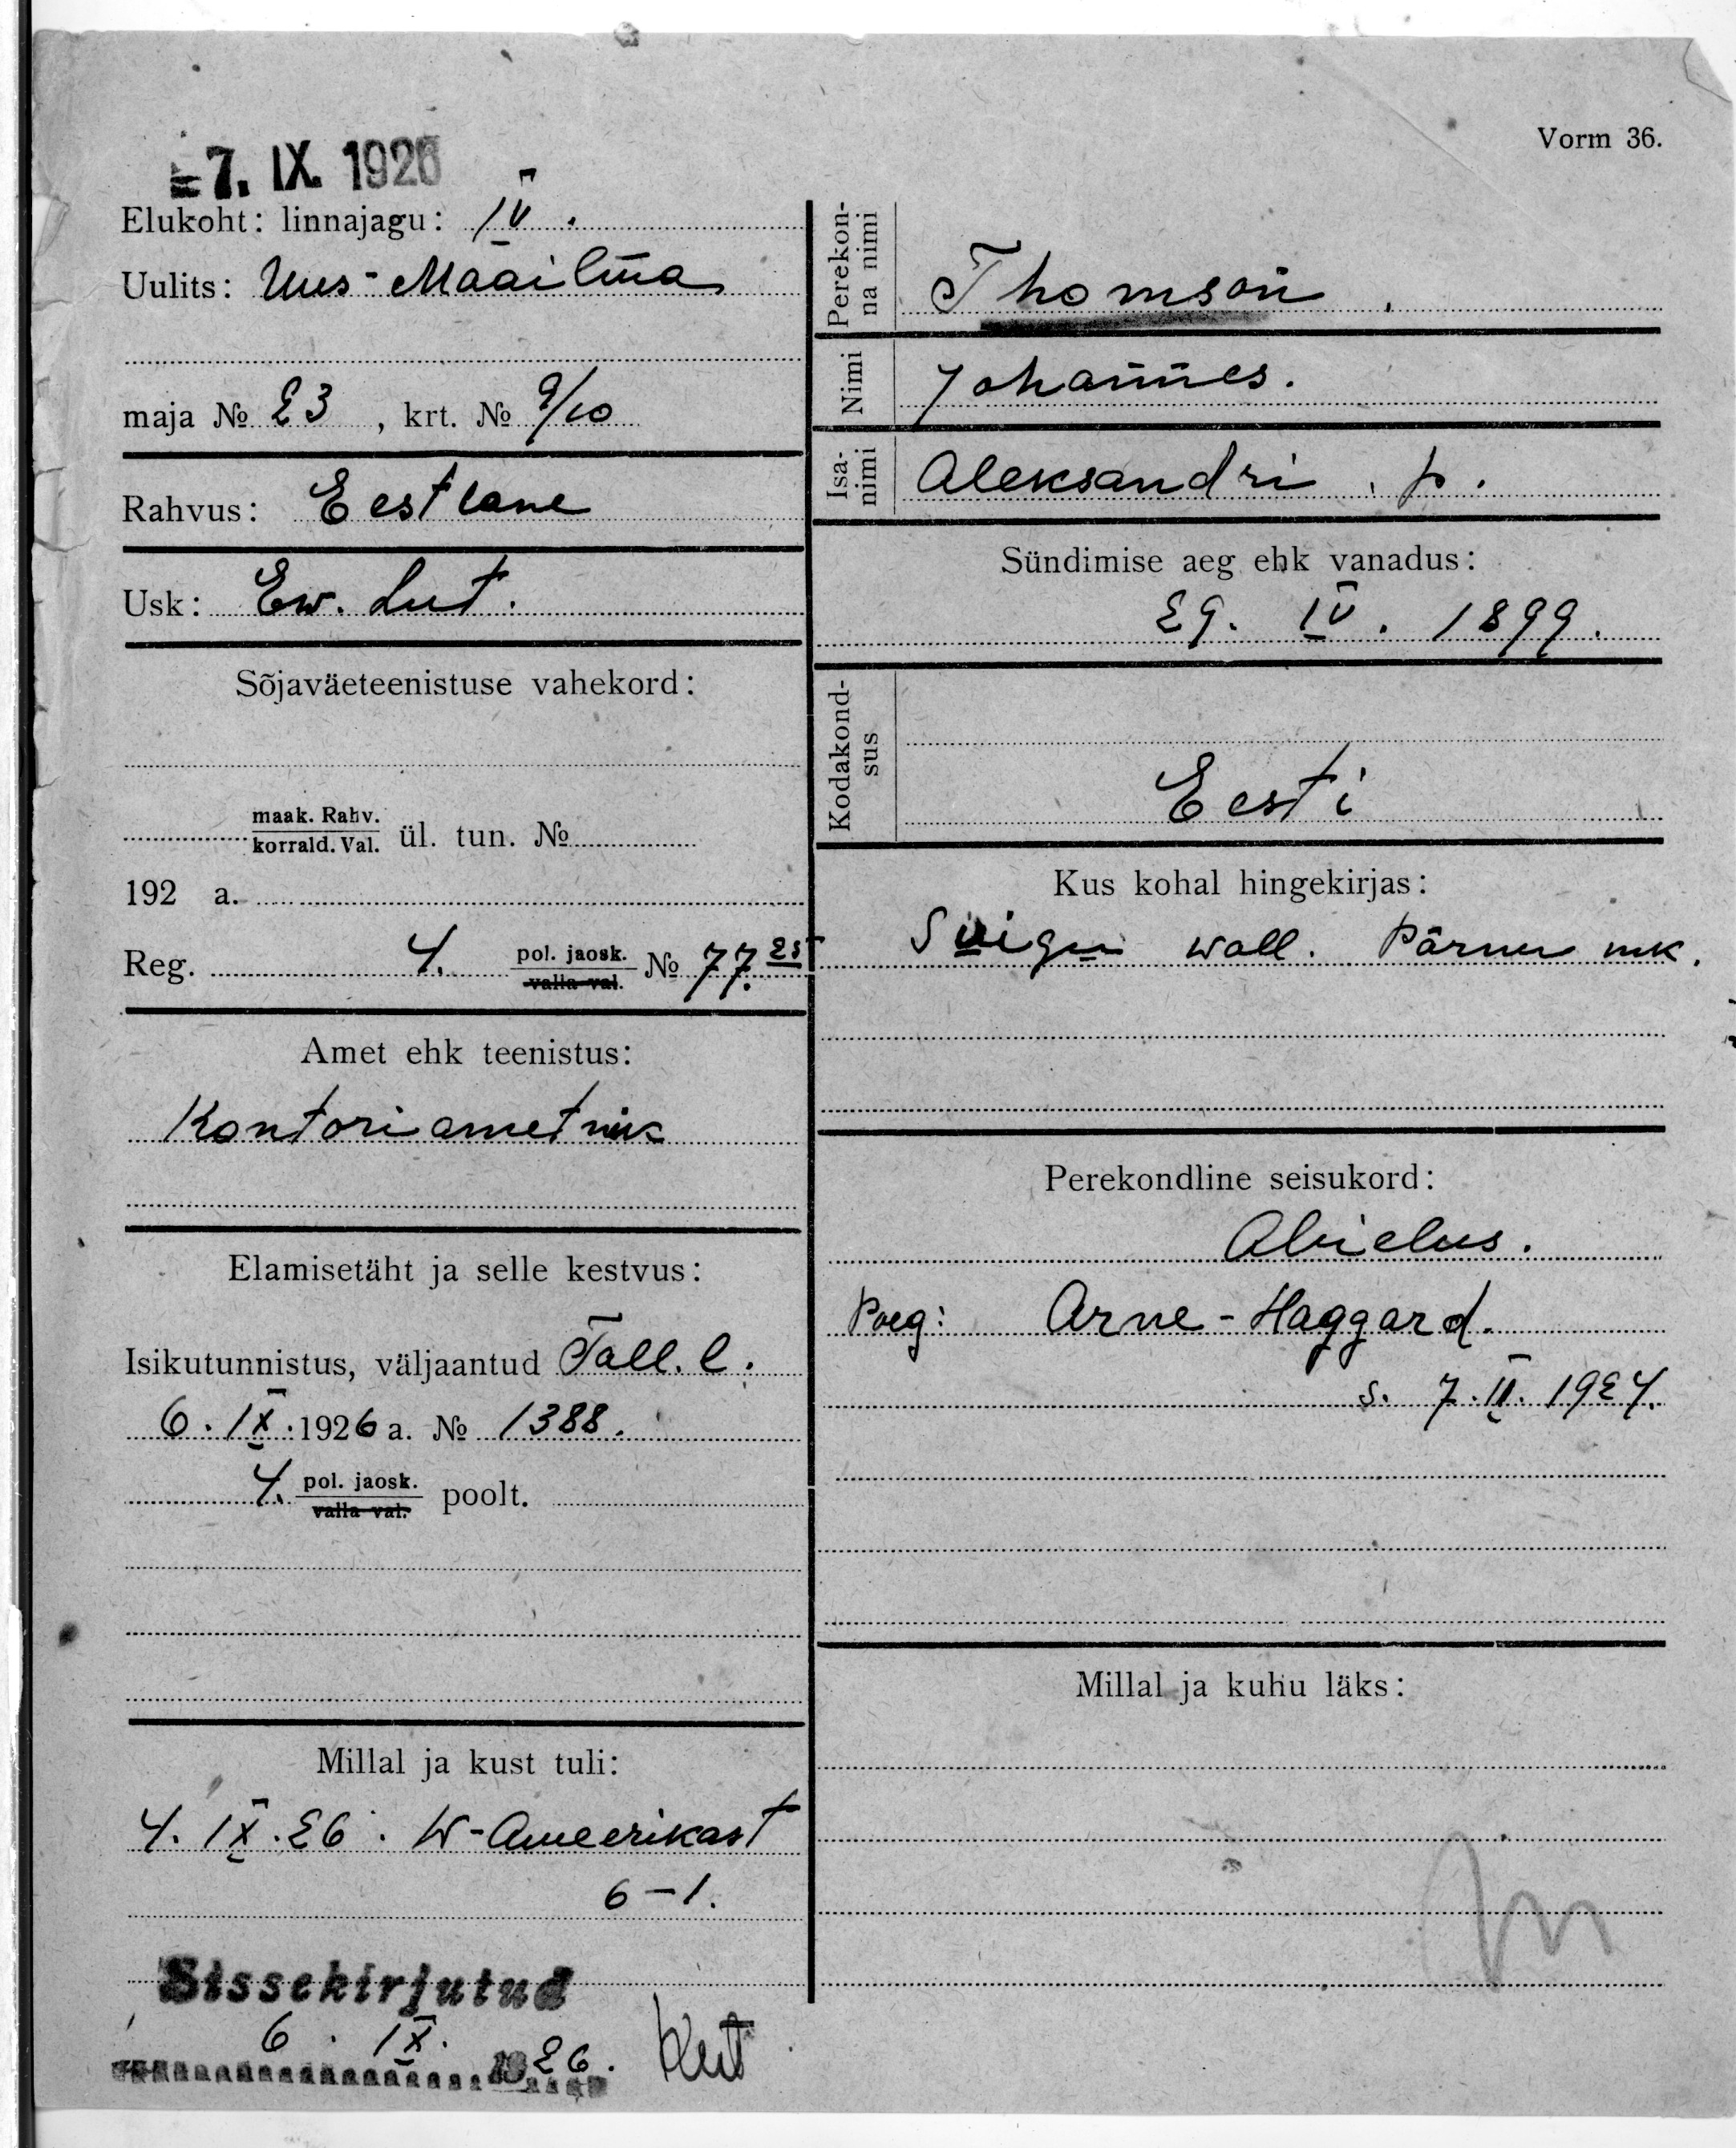 -7. IX. 1926
Vorm 36.
Elukoht: linnajagu: IV.
Uulits: Uus-Maailma
maja № 23, krt. № 9/10
Rahvus: Eestlane
Usk: Ew. Lut.
Sõjaväeteenistuse vahekord:
maak. Rahv.
korrald. Val. ül. tun. №
192 a.
Reg. 4. pol. jaosk. № 77.25
valla val.
Amet ehk teenistus:
Kontoriametnik
Elamisetäht ja selle kestvus:
Isikutunnistus, väljaantud Tall. l.
6. IX. 1926 a. № 1388.
4. pol. jaosk. poolt.
valla val.
Millal ja kust tuli:
4. IX. 26. W-Ameerikast
6-1.
Sissekirjutud
6. IX. 1926.
Perekonna nimi
Thomson.
Nimi
Johannes.
Isanimi
Aleksandri p.
Sündimise aeg ehk vanadus:
29. IV. 1899.
Kodakondsus
Eesti
Kus kohal hingekirjas:
Suigu wall. Pärnu mk.
Perekondline seisukord:
Abielus.
Poeg: Arne-Haggard.
s. 7. II. 1924.
Millal ja kuhu läks: